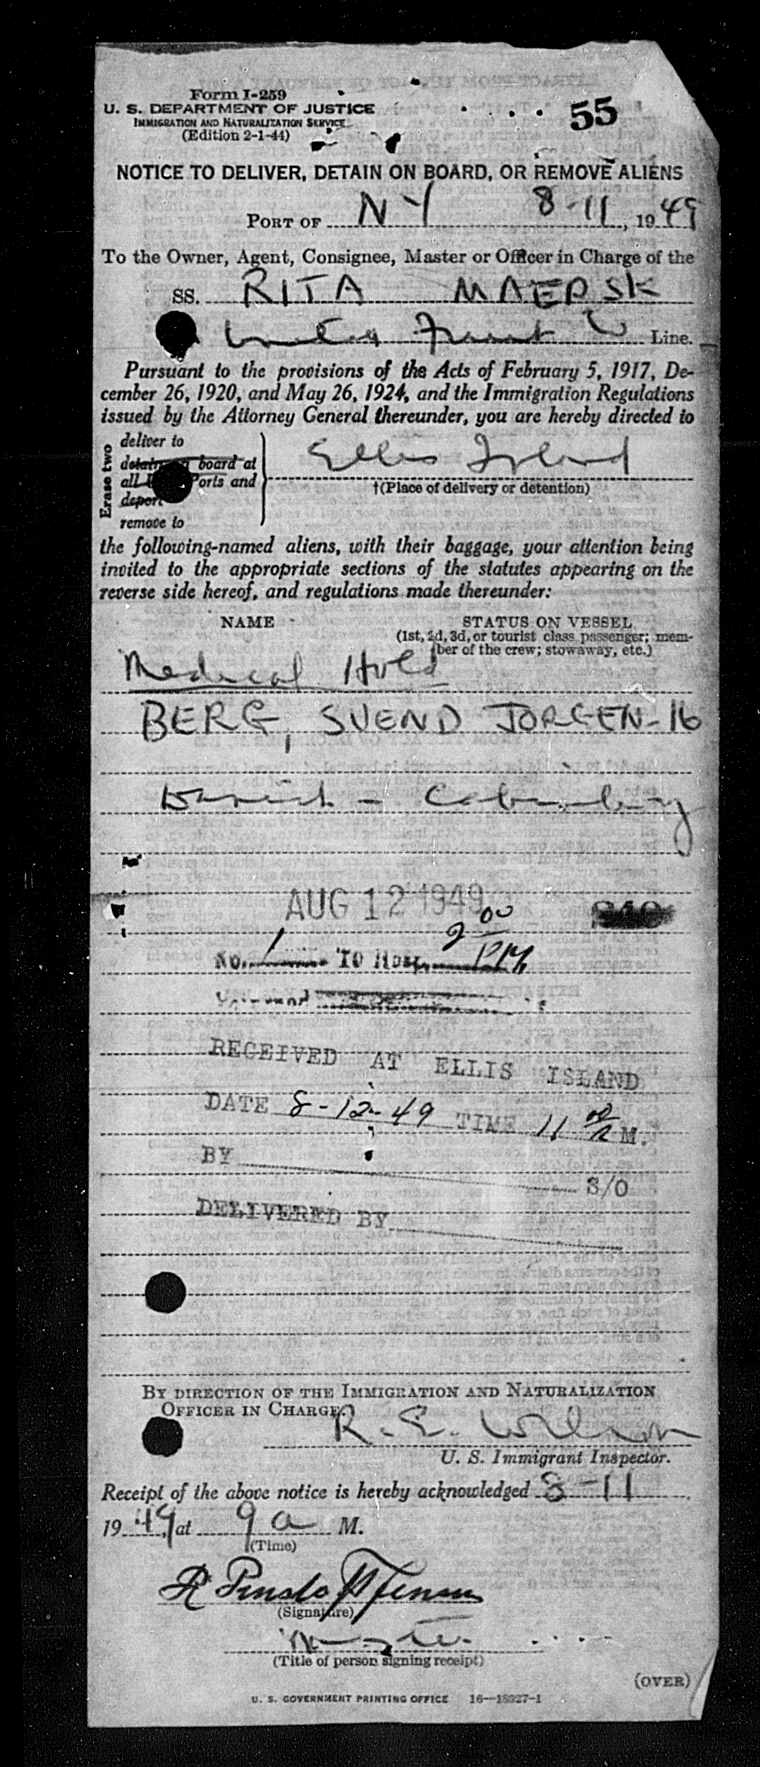 Form I-259
55
U. S. DEPARTMENT OF JUSTICE
IMMIGRATION AND NATURALIZATION SERVICE
(Edition 2-1-44)
NOTICE TO DELIVER, DETAIN ON BOARD, OR REMOVE ALIENS
PORT OF NY 8-11, 1949
To the Owner, Agent, Consignee, Master or Officer in Charge of the
SS. RITA MAERSK
United Fruit Co Line.
Pursuant to the provisions of the Acts of February 5, 1917, De-
cember 26, 1920, and May 26, 1924, and the Immigration Regulations
issued by the Attorney General thereunder, you are hereby directed to
Erase two
deliver to
detain on board at
all Ports and
deport
remove to
Ellis Island
†(Place of delivery or detention)
the following-named aliens, with their baggage, your attention being
invited to the appropriate sections of the statutes appearing on the
reverse side hereof, and regulations made thereunder:
NAME
STATUS ON VESSEL
(1st, 2d, 3d, or tourist class passenger; mem-
ber of the crew; stowaway, etc.)
Medical Hold
BERG, SVEND JORGEN-16
Danish - Cabin boy
AUG 12 1949
No. 1 TO Hosp. 2 00 PM
RECEIVED AT ELLIS ISLAND
DATE 8-12-49 TIME 11 00 A M.
BY
S/O
DELIVERED BY
BY DIRECTION OF THE IMMIGRATION AND NATURALIZATION
OFFICER IN CHARGE.
R. E. Wilson
U. S. Immigrant Inspector.
Receipt of the above notice is hereby acknowledged 8-11
1949, at 9 a M.
(Time)
(Signature)
Master
(Title of person signing receipt)
(OVER)
U. S. GOVERNMENT PRINTING OFFICE 16—18927-1